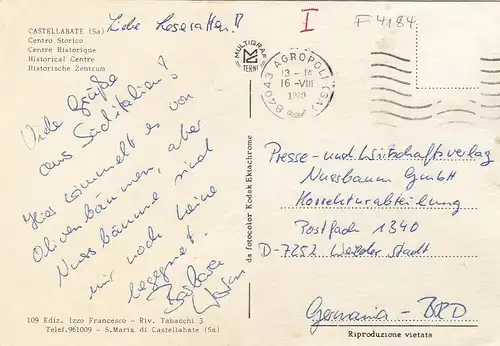 CASTELLABATE (Sa)
Centro Storico
Centre Historique
Historical Centre
Historisches Zentrum
Liebe Leseratten!!
I
F 4184
MULTIGRAF
TERNI
84043 AGROPOLI (SA)
13-14
16-VIII
Viele Grüße
aus Süditalien!
Hier wimmelt es von
Olivenbäumen, aber
Nussbäume sind
mir noch keine
begegnet!
Barbara
da fotocolor Kodak Ektachrome
Presse- und Wirtschaftsverlag
Nussbaum GmbH
Korrekturabteilung
Postfach 1340
D-7252 Weil der Stadt
Germania - BRD
109 Ediz. Izzo Francesco - Riv. Tabacchi 3
Telef. 961009 - S. Maria di Castellabate (Sa)
Riproduzione vietata